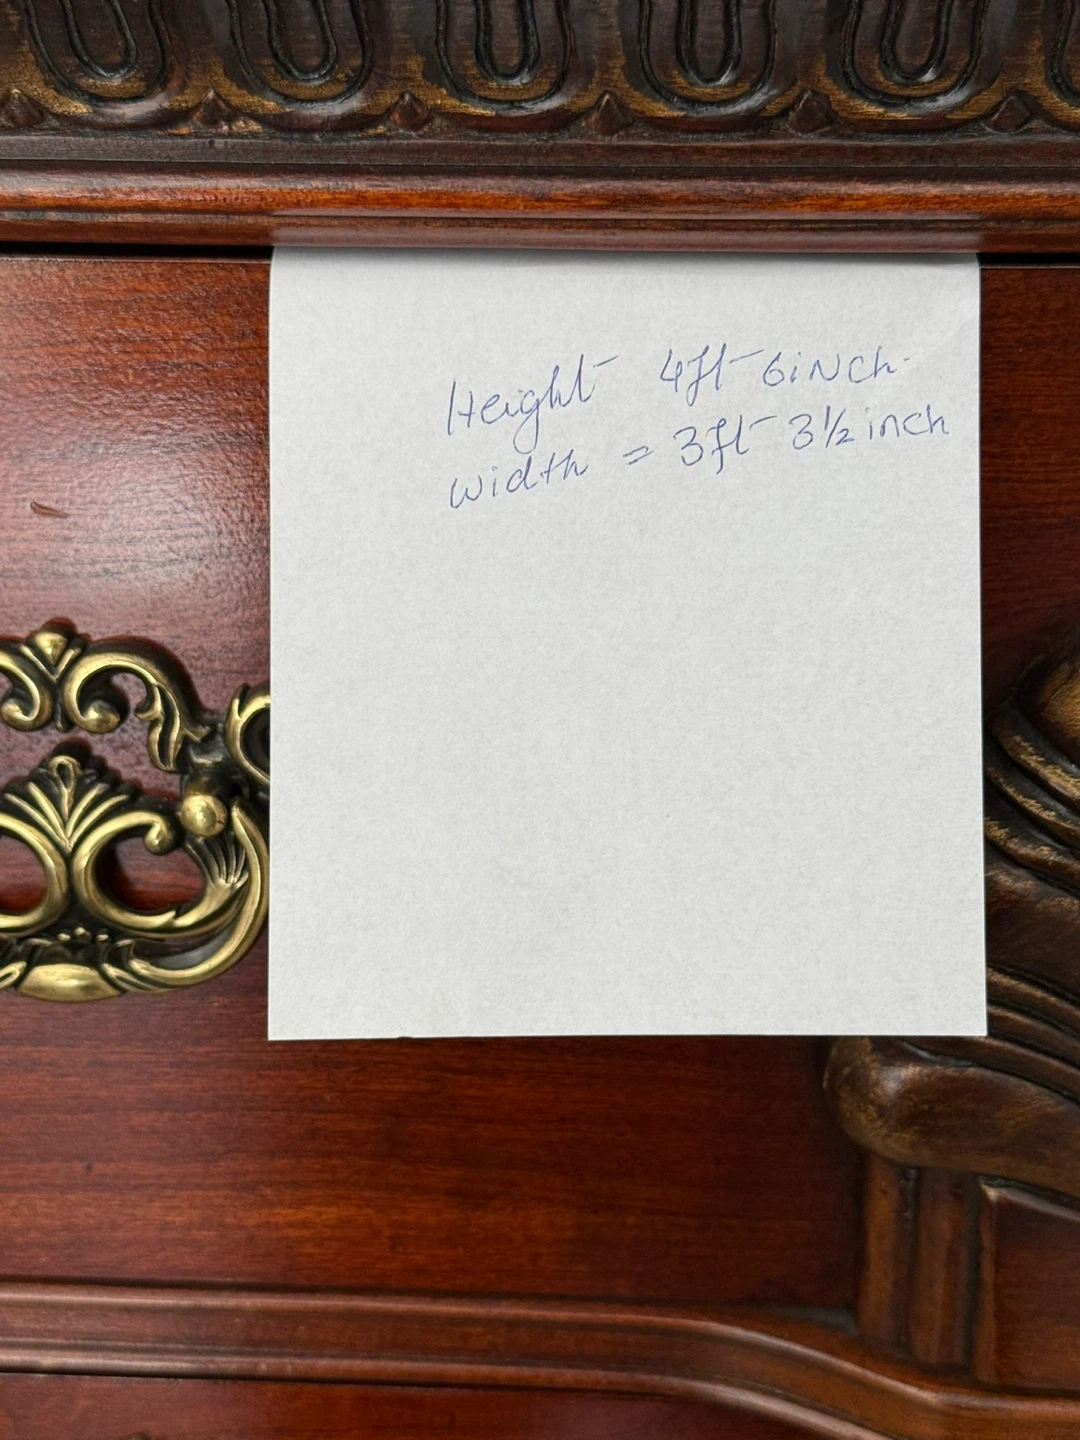 Height 4ft 6inch
width = 3ft 3½ inch